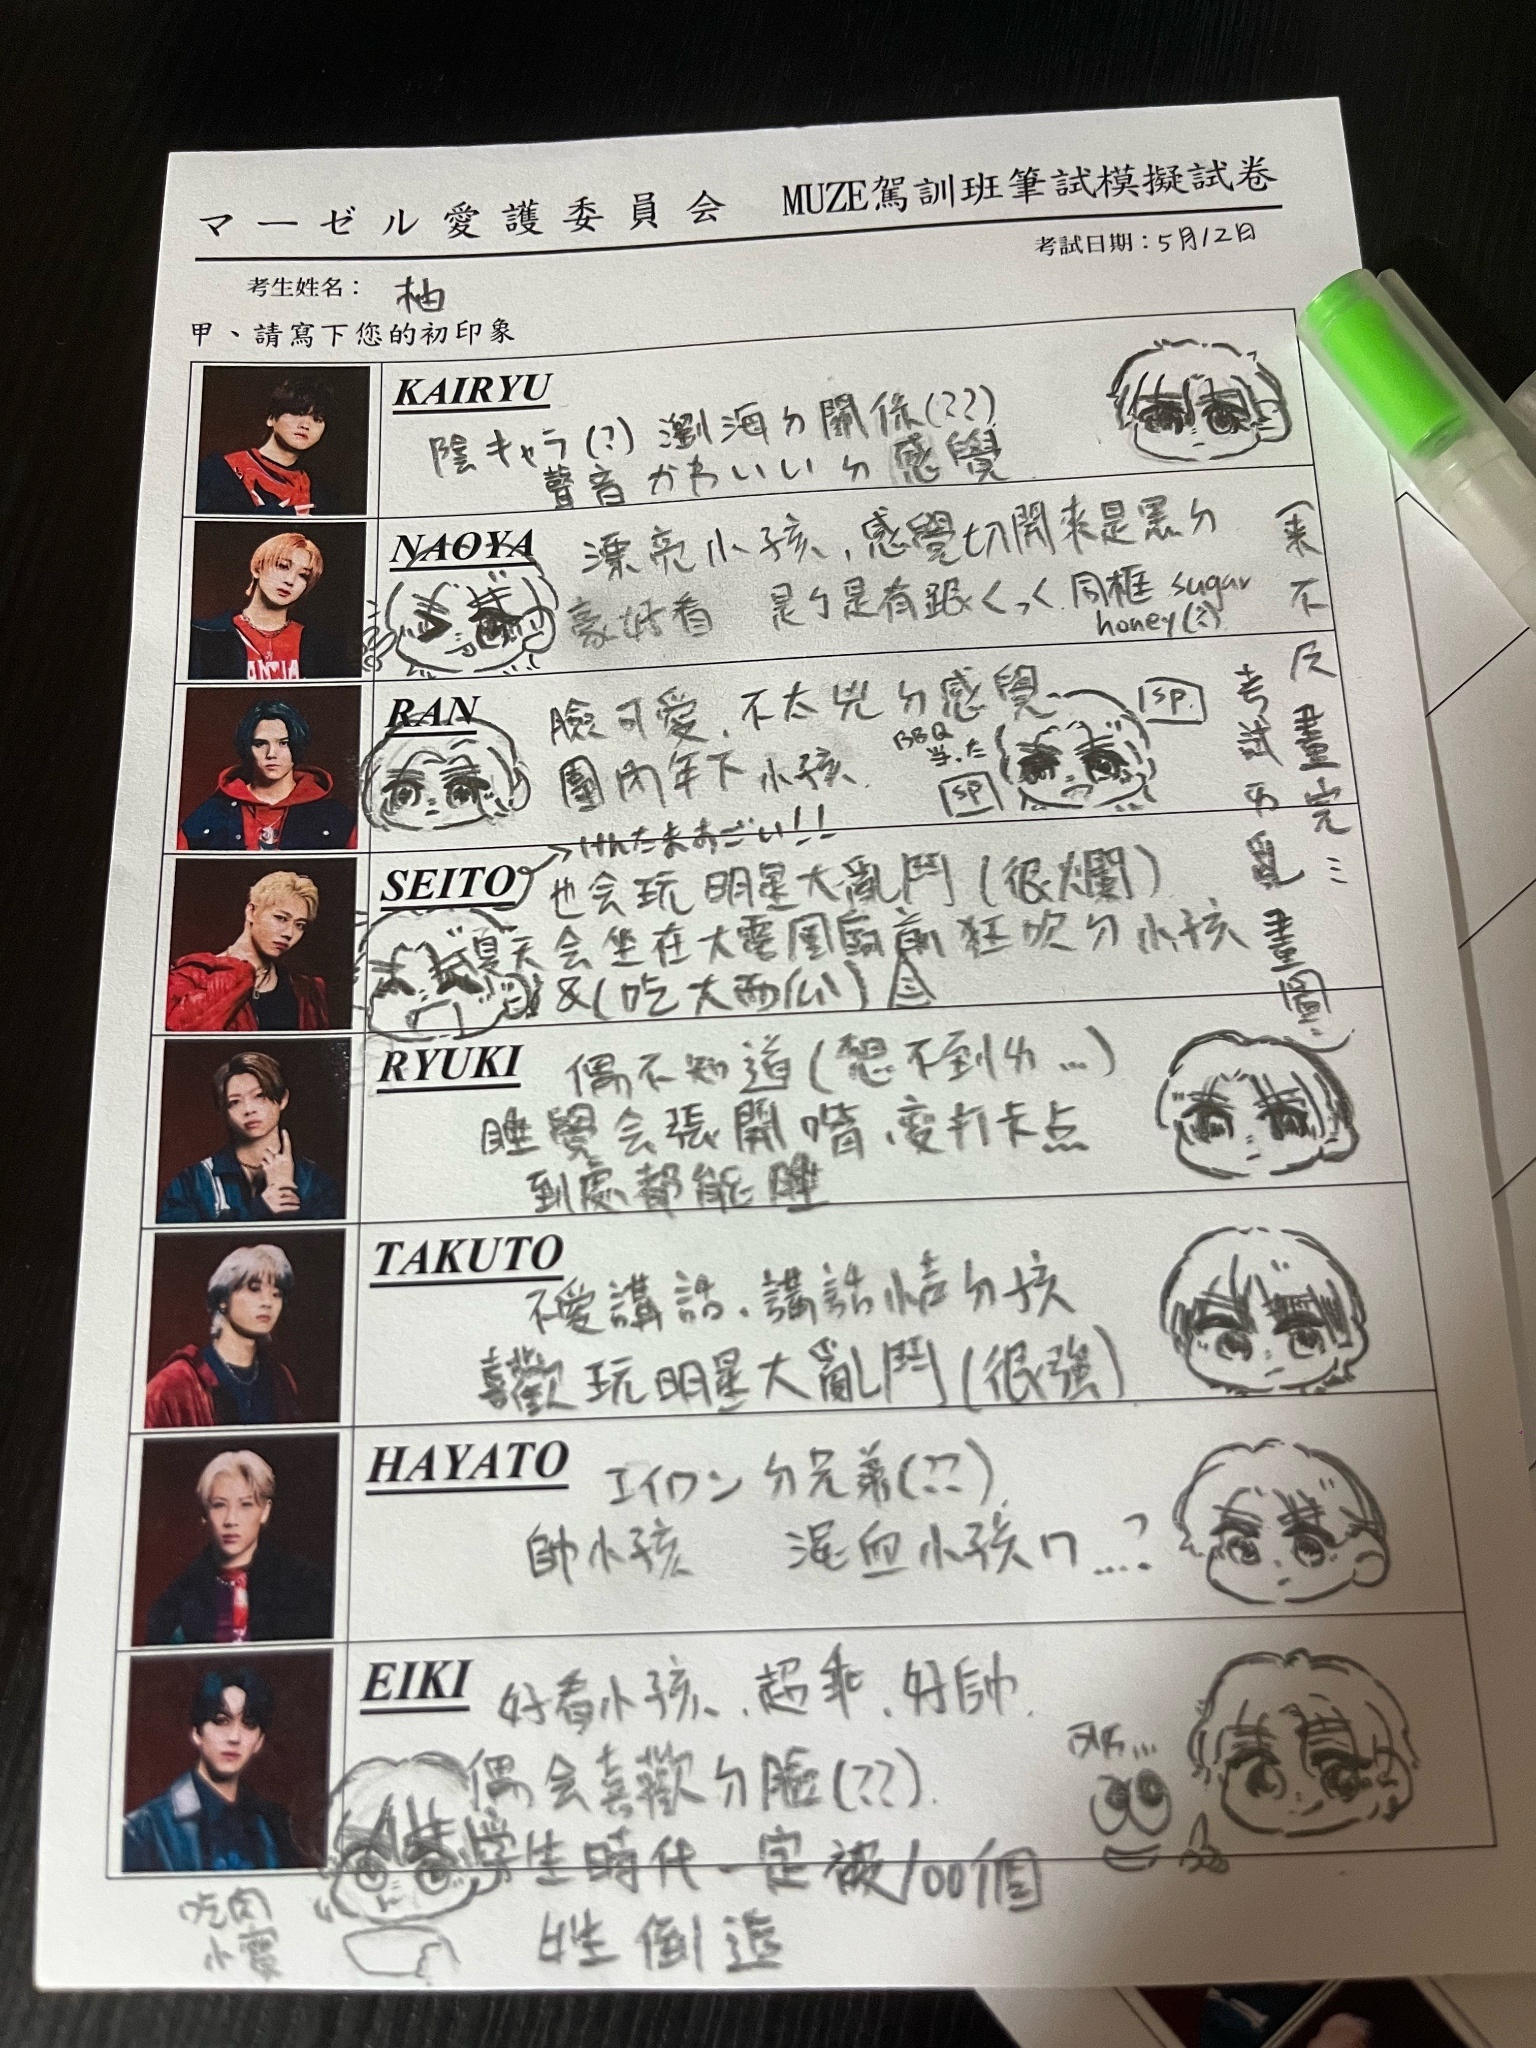 マーゼル愛護委員会 MUZE駕訓班筆試模擬試卷
考試日期：5月12日
考生姓名： 柚
甲、請寫下您的初印象
KAIRYU
陰キャラ(?) 瀏海ㄉ關係(??)
聲音かわいいㄉ感覺
NAOYA
漂亮小孩、感覺切開來是黑ㄉ
豪好看 是ㄅ是有跟くっく同框 sugar
honey(?)
RAN
臉可愛、不太兇ㄉ感覺
團內年下小孩
BBQ
当った
SP
SP.
(來不及畫完
考試亦亂畫圖
SEITO
けんだますごい!!
也会玩明星大亂鬥(很爛)
夏天会坐在大電風扇前狂吹ㄉ小孩
&(吃大西瓜)
RYUKI
偶不知道(想不到ㄌ...)
睡覺会張開嘴、變打卡点
到處都能睡
TAKUTO
不愛講話、講話小聲ㄉ孩
喜歡玩明星大亂鬥(很強)
HAYATO
エイロンㄉ兄弟(??)
帥小孩 混血小孩ㄇ....?
EIKI
好看小孩、超乖、好帥
偶会喜歡ㄉ臉(??)
學生時代一定被100個
女生倒追
吃肉
小寶